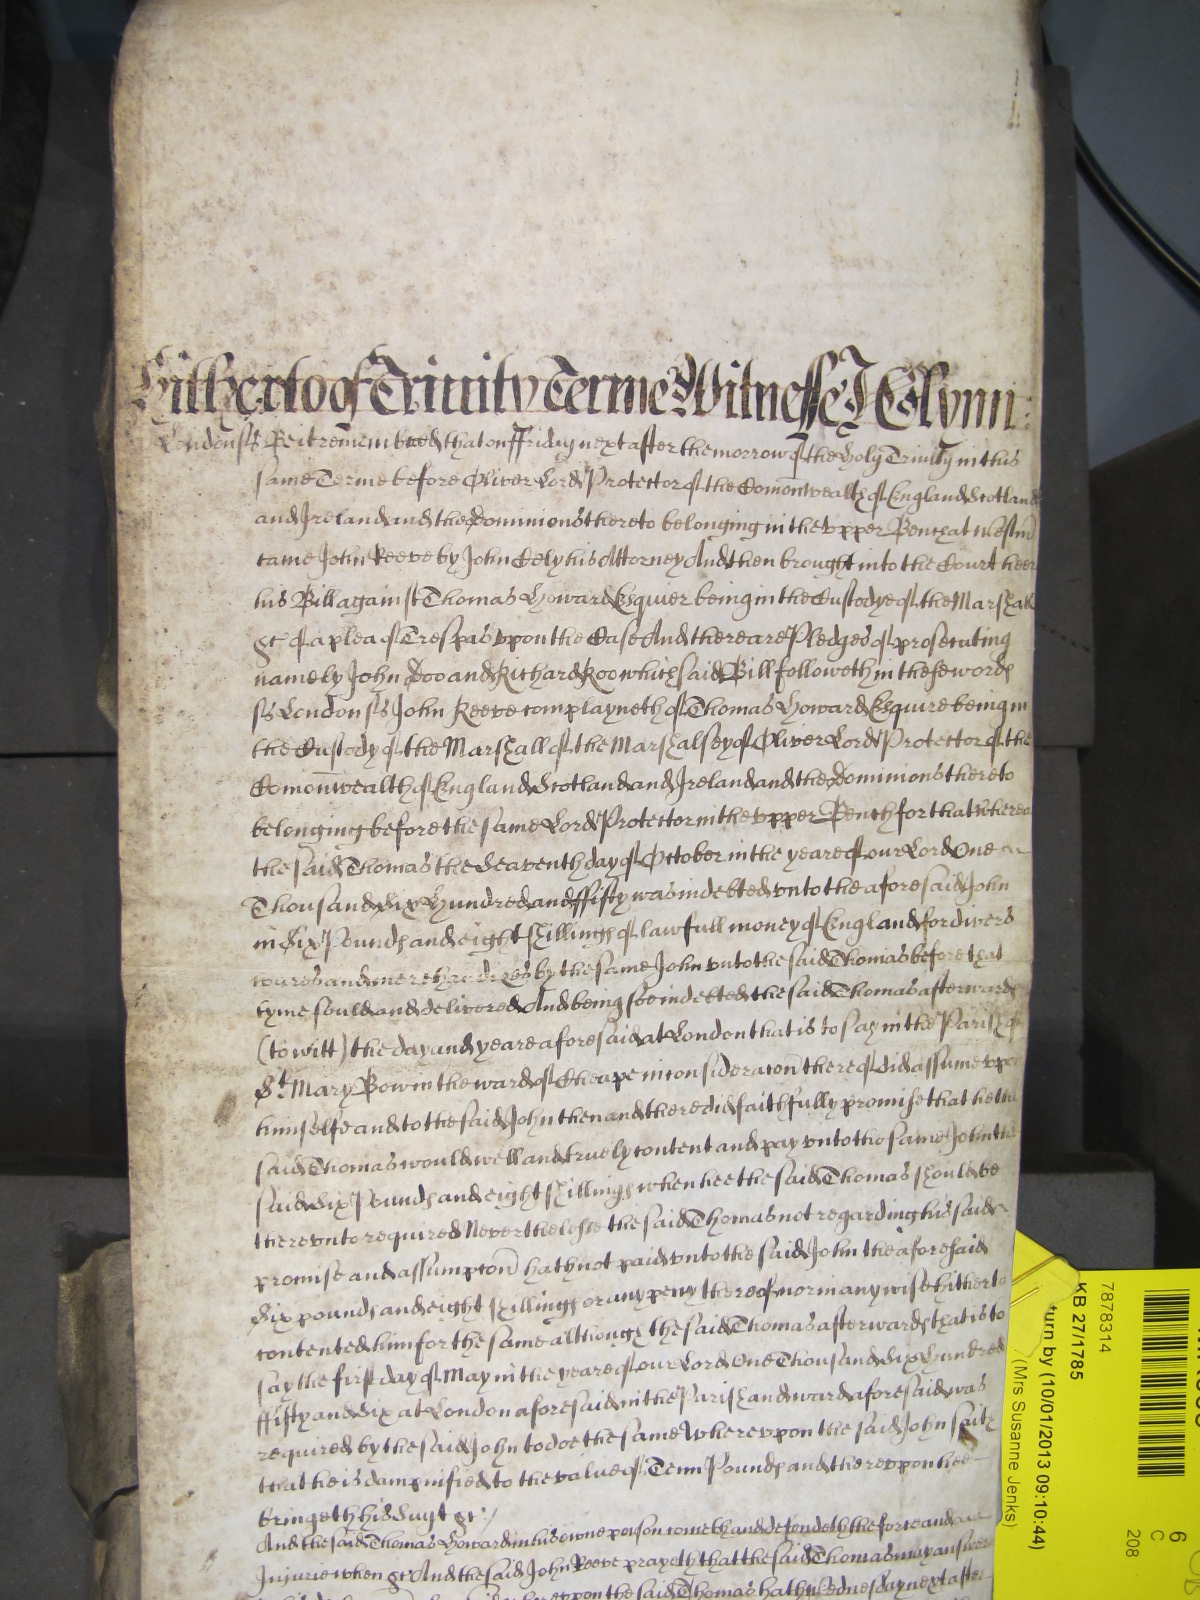 Hitherto of Trinity Terme Witnesse J Glynn:
London ss Be it remembred that on ffriday next after the morrow of the Holy Trinity in this
same Terme before Oliver Lord Protector of the Comōnwealth of England Scotland
and Ireland and the Dominions thereto belonging in the vpper Bench at Westm̄
came John Keeve by John Cely his Attorney And then brought into the Court heer
his Bill against Thomas Howard Esquier being in the Custodye of the Marshall
&c of a plea of Trespas vpon the Case And there are Pledges of prosecuting
namely John Doo and Richard Roo which said Bill followeth in these words
ss London ss John Keeve complayneth of Thomas Howard Esquire being in
the Custody of the Marshall of the Marshalsey of Oliver Lord Protector of the
Comōnwealth of England Scotland and Ireland and the Dominions thereto
belonging before the same Lord Protector in the vpper Bench for that wherea
the said Thomas the Seaventh day of October in the yeare of our Lord One
Thousand Six Hundred and ffifty was indebted vnto the aforesaid John
in Six Pounds and eight shillings of lawfull money of England for divers
wares and merchandizes by the same John vnto the said Thomas before that
tyme sould and delivered And being soe indebted the said Thomas afterwards
(to witt) the day and yeare aforesaid at London that is to say in the Parish of
St Mary Bow in the ward of Cheape in consideracōn thereof did assume vpon
himselfe and to the said John then and there did faithfully promise that he the
said Thomas would well and truely content and pay vnto the same John the
said Six Pounds and eight shillings when hee the said Thomas should be
therevnto required Neverthelesse the said Thomas not regarding his said
promise and assumptōn hath not paid vnto the said John the aforesaid
Six pounds and eight shillings or any peny thereof nor in any wise hitherto
contented him for the same although the said Thomas afterwards that is to
say the first day of May in the yeare of our Lord One Thousand Six Hundred
ffifty and Six at London aforesaid in the Parish and ward aforesaid was
required by the said John to doe the same Wherevpon the said John saith
that he is dampnified to the value of Tenn Pounds and therevpon hee
bringeth his Suyt &c
And the said Thomas Howard in his owne person cometh and defendeth the force and
Injurie when &c And the said John Keeve prayeth that the said Thomas may answer
vpon the said Thomas hath Wednesday next after
turn by (10/01/2013 09:10:44)
KB 27/1785
7878314
(Mrs Susanne Jenks)
6
C
208